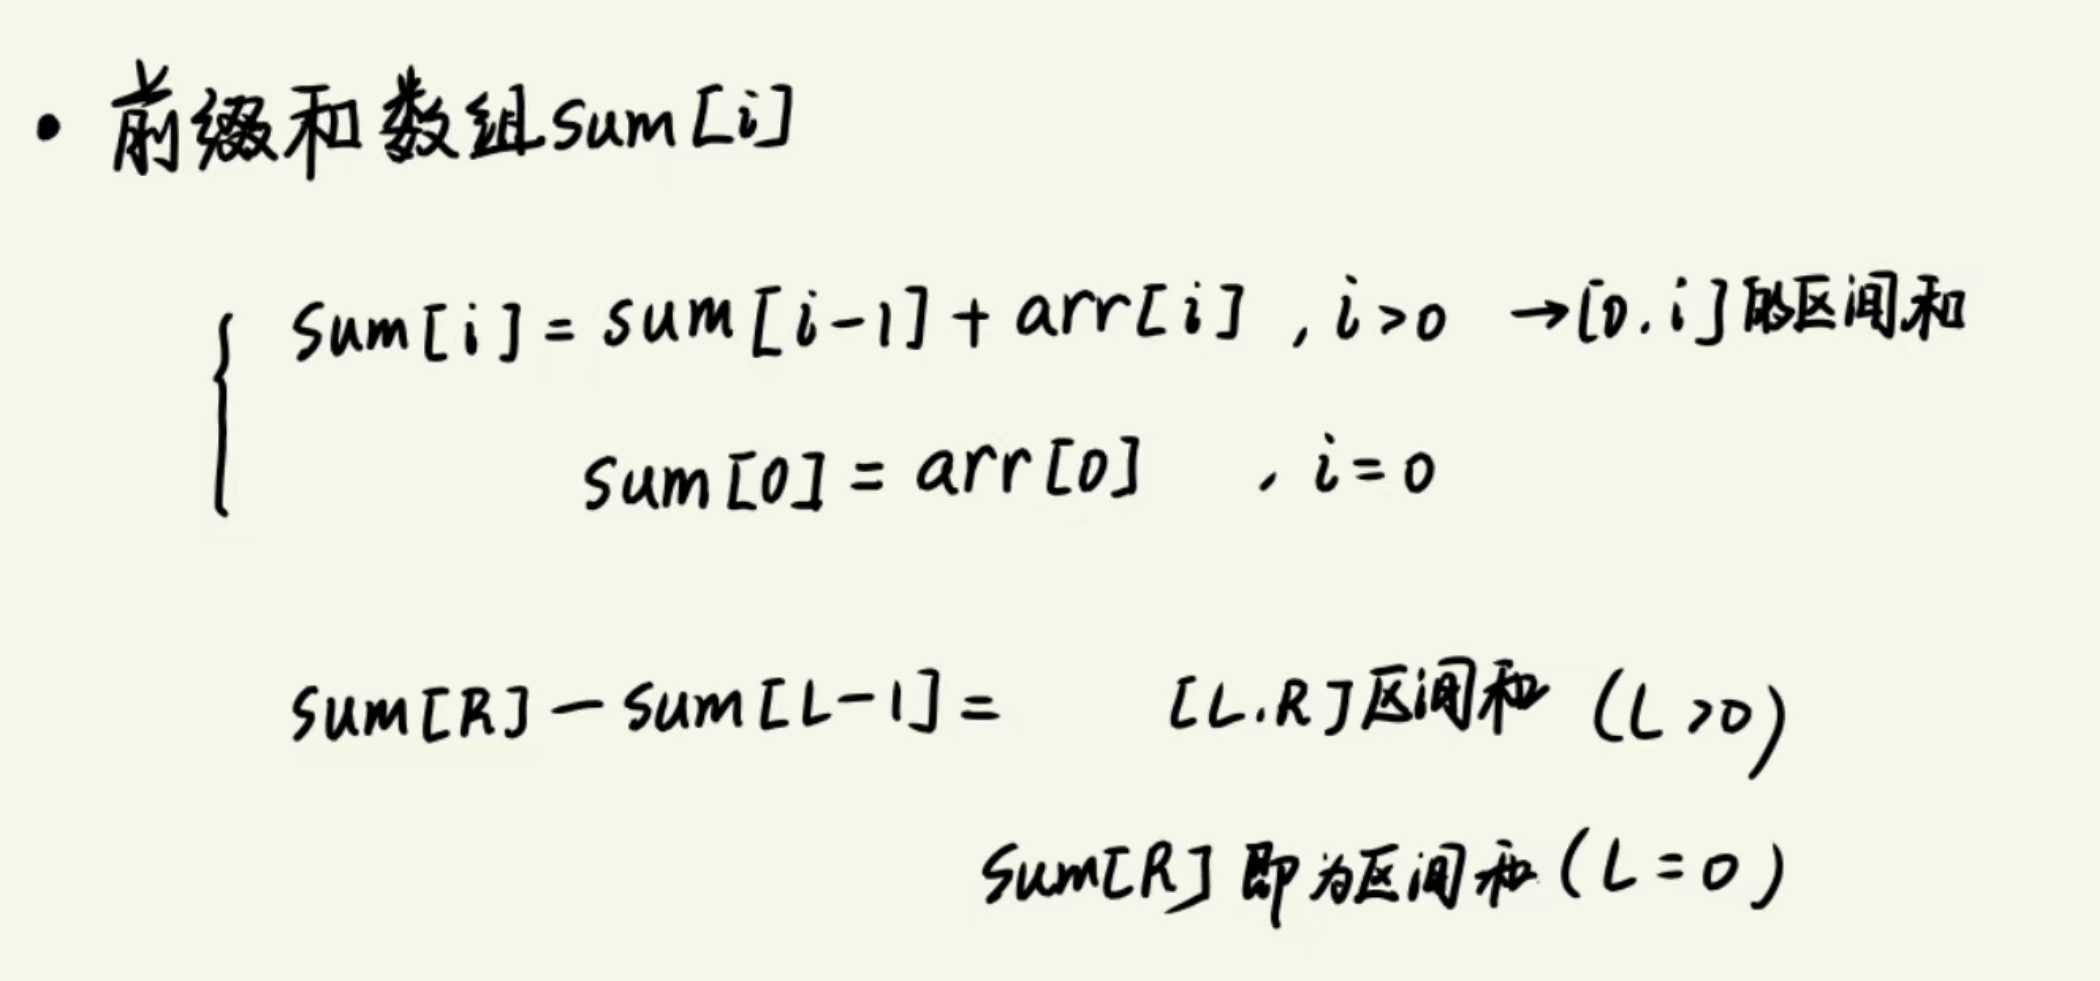 • 前缀和数组sum[i]
sum[i] = sum[i-1] + arr[i] , i>0 →[0,i]的区间和
sum[0] = arr[0] , i=0
sum[R] - sum[L-1] = [L,R]区间和 (L>0)
sum[R] 即为区间和 (L=0)